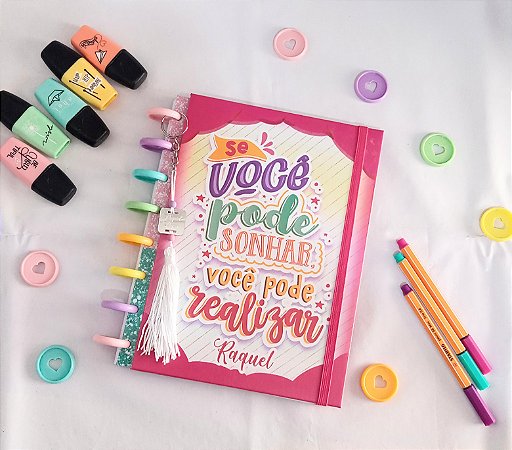 se
você
pode
sonhar
você pode
realizar
Raquel